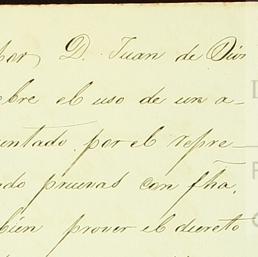 por D. Juan de Dios
bre el uso de un a-
entado por el repre-
ndo pruevas con fha.
bien prover el decreto